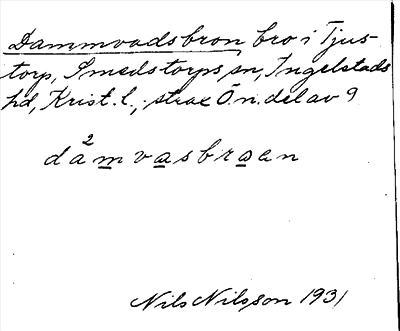 Dammvadsbron, bro i Tjus-
torp, Smedstorps sn, Ingelstads
hd, Krist. l., strax Ö.n. del av 9
da²mvasbraan
Nils Nilsson 1931